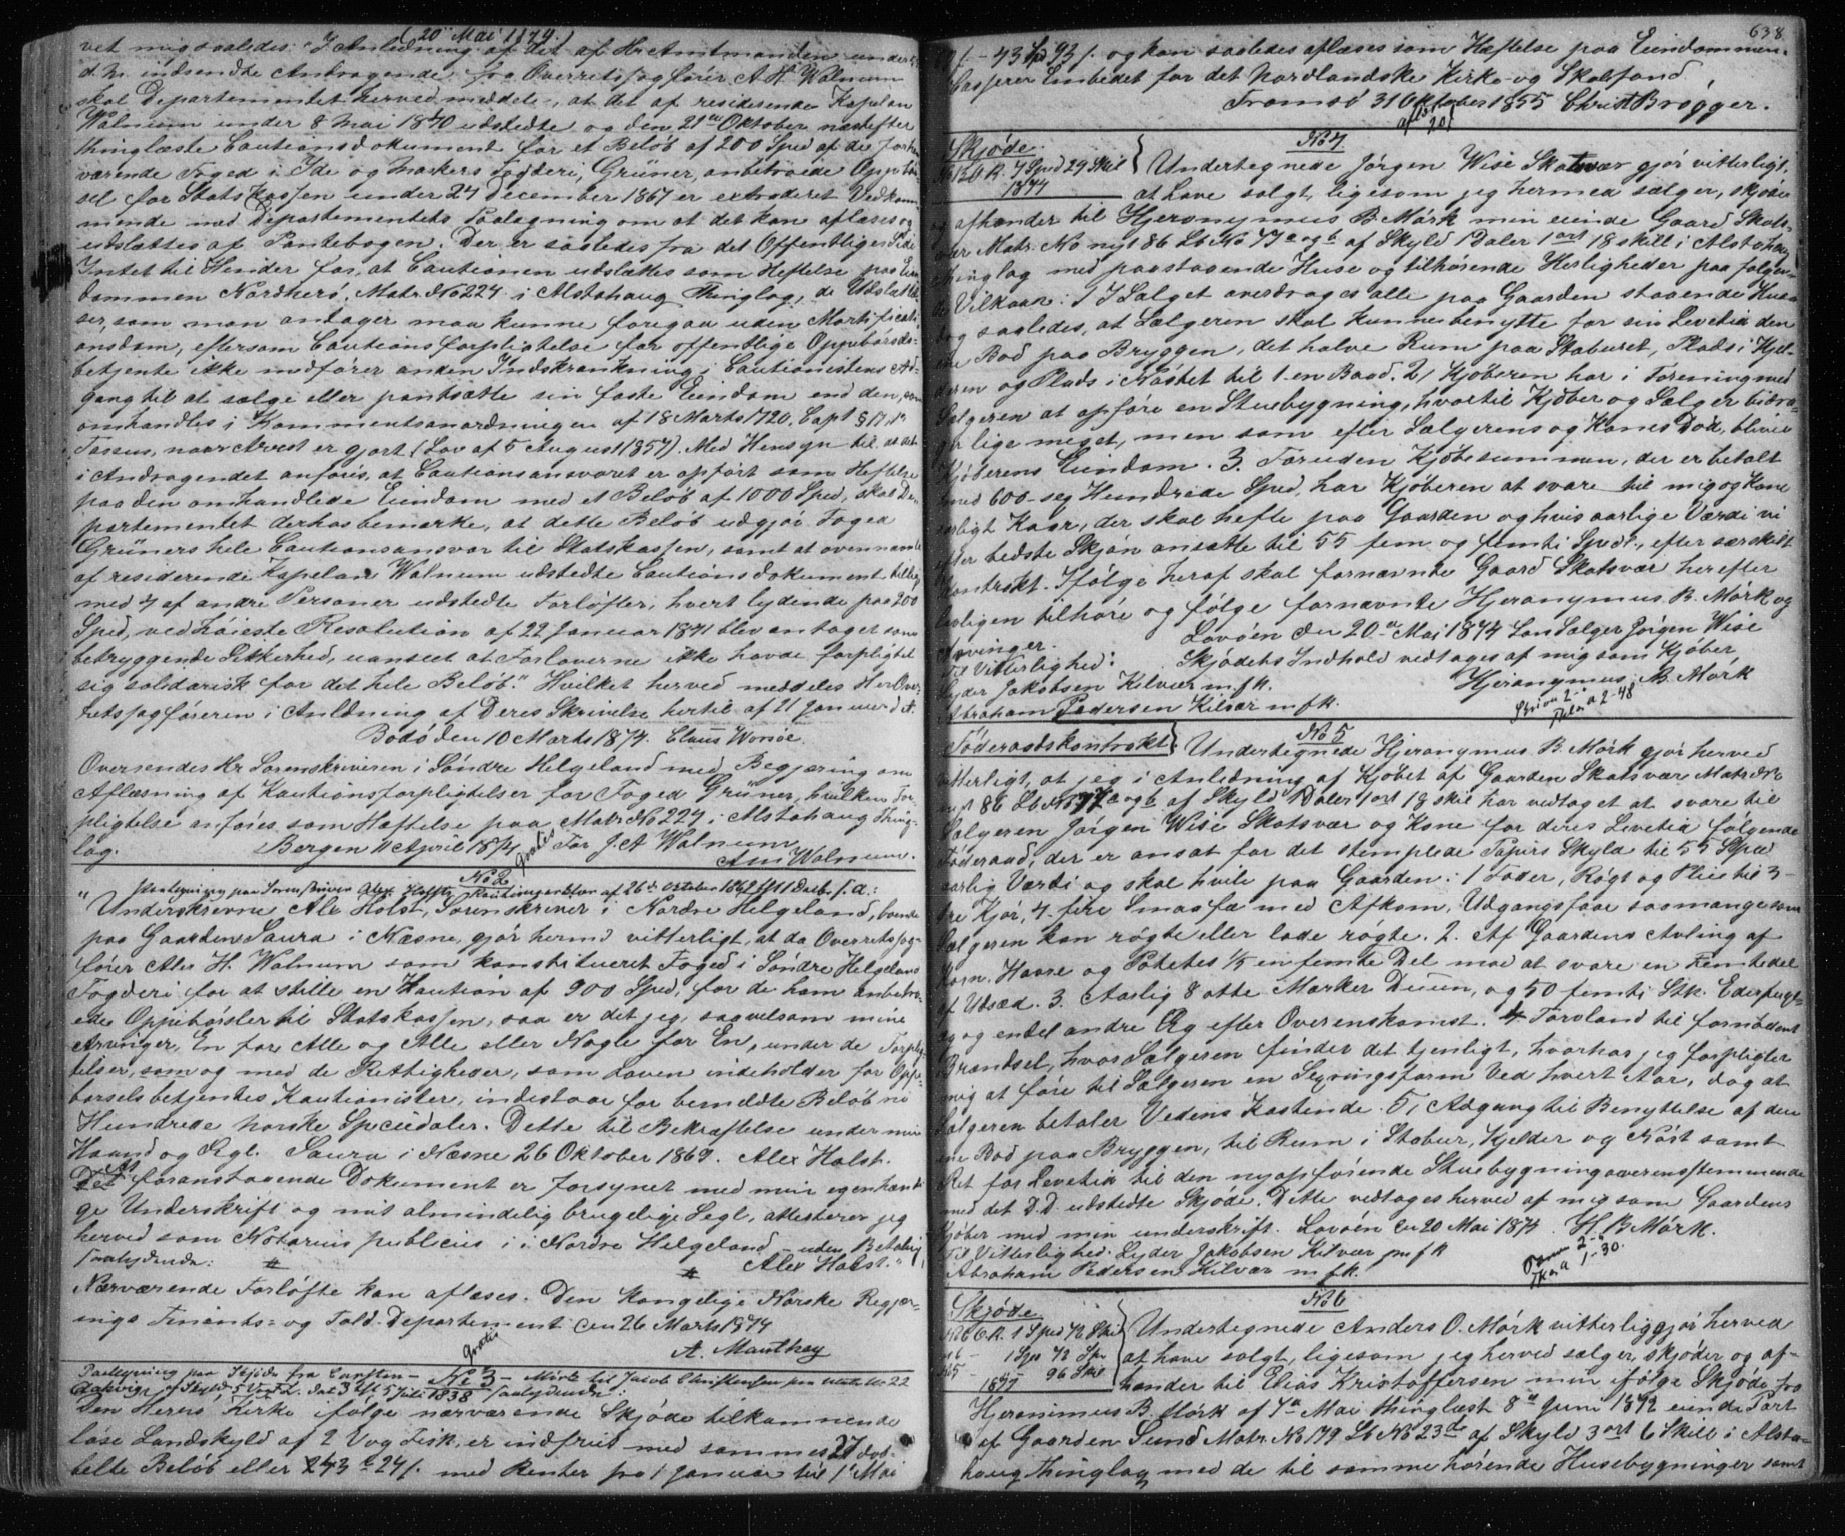 (20 Mai 1874.)
vet mig saaledes: "I Anledning af det af Hr Amtmanden under
d. M. indsendte Andragende fra Overretssagfører A. H. Walnum
skal Departementet herved meddele, at det af residerende Kapelan
Walnum under 8 Mai 1870 udstedte og den 21de Oktober næstefter
thinglæste Cautionsdokument for et Beløb af 200 Spd af de forhen
værende Foged i Ide og Markers Fogderi, Grüner, anbetroede Oppebør
sel for Statskassen under 24 December 1867 er extraderet Vedkom
mende med Departementets Paategning om at det kan aflæses og
udslettes af Pantebogen. Der er saaledes fra det Offentliges Side
Intet til Hinder for, at Cautionen udslettes som Heftelse paa Eien
dommen Nordherø, Matr. No 224 i Alstahaug Thinglag, de Udslettel
ser, som man antager maa kunne foregaa uden Mortificati
onsdom, eftersom Cautionsforpligtelse for offentlige Oppebørsds-
betjente ikke medfører anden Indskrænkning i Cautionistens Ad-
gang til at sælge eller pantsætte sin faste Eiendom end den, som
omhandles i Kommentsanordningen af 18 Marts 1720, Capt §
Passus, naar Arrest er gjort (Lov af 5 August 1857). Med Hensyn til at det
i Andragendet anføres, at Cautionsansvaret er opført som Heftelse
paa den omhandlede Eiendom med et Beløb af 1000 Spd, skal De
partementet derhos bemærke, at dette Beløb udgjør Foged
Grüners hele Cautionsansvar til Statskassen, samt at ovennævnte
af residerende Kapelan Walnum udstedte Cautionsdokument tillige
med 4 af andre Personer udstedte Forløfter, hvert lydende paa 200
Spd, ved høieste Resolution af 22 Januar 1841 blev antaget som
betryggende Sikkerhed, uanseet at Forloverne ikke havde forpligtet
sig solidarisk for det hele Beløb." Hvilket herved meddeles Hr Over
retssagføreren i Anledning af Deres Skrivelse hertil af 21 Januar d. A.
Bodø den 10 Marts 1874. Claus Worsøe.
Oversendes Hr Sorenskriveren i Søndre Helgeland med Begjæring om
Aflæsning af Kautionsforpligtelser for Foged Grüner, hvilken For
pligtelse anføres som Hæftelse paa Matr No 224 i Alstahaug Thing-
lag. Bergen 11 April 1874 For J. A Walnum
Gratis AmWalnum.
No 2
Paategning paa Sorenskriver Alex Holsts Kautionserklæring af 26de October 1869
"Underskrevne Alex Holst, Sorenskriver i Nordre Helgeland, boende
paa Gaarden Saura i Næsne, gjør hermed vitterligt, at da Overretssag-
fører Alex H. Walnum som konstitueret Foged i Søndre Helgelands
Fogderi for at stille en Kaution af 900 Spd, for de ham anbetro
ede Oppebørsler til Statskassen, saa er det jeg, saavelsom mine
Arvinger, En for Alle og Alle eller Nogle for En, under de Forplig-
telser, som og med de Rettigheder, som Loven indeholder for Oppe
børselsbetjentes Kautionister, indestaar for bemeldte Beløb ni
Hundrede norske Speciedaler. Dette til Bekræftelse under min
Haand og Segl. Saura i Næsne 26 Oktober 1869. Alex Holst.
At foranstaaende Dokument er forsynet med min egenhændi
ge Underskrift og mit almindelig brugelige Segl, attesterer jeg
herved som Notarius publicus i Nordre Helgeland – uden Betaling
saalydende: Alex Holst."
Nærværende Forløfte kan aflæses. Den kongelige Norske Regjer-
ings Finants- og Told-Departement den 26 Marts 1874
Gratis A. Manthey
Paategning paa Skjøde fra Carsten – No 3 – Mørk til Jacob Christensen paa Matr No 22
Bakvig, af Skyld 5 Vog 2. Dat 3 Th. 5 Juli 1838 saalydende:
Den Herø Kirke ifølge nærværende Skjøde tilkommende
løse Landskyld af 2 Vog Fisk, er indfriet med sammes 27 dob-
belte Beløb eller 243 24 /. med Renter fra 1 Januar til 1te Mai
638
/. – 43 Spd 93 /. og kan saaledes aflæses som Hæftelse paa Eiendommen.
Casserer Embedet for det Nordlandske Kirke- og Skolefond
Tromsø 31 Oktober 1855 Christ Brøgger.
aflæst 20/
Skjøde. No 4
No 120 R. 4 Spd 24 Skil Undertegnede Jørgen Wise Skotsvær gjør vitterligt,
1874 at have solgt, ligesom jeg hermed sælger, skjøder
og afhænder til Hjeronymus B. Mørk min eiende Gaard Skots-
vær Matr. No nyt 86 Lb No 77 a og b af Skyld 1 Daler 1 ort 18 skill i Alstahoug
thinglag med paastaaende Huse og tilhørende Herligheder paa følgen-
de Vilkaar: 1 I Salget overdrages alle paa Gaarden staaende Huse
dog saaledes, at Sælgeren skal kunne benytte for sin Levetid den
ene Bod paa Bryggen, det halve Rum paa Staburet, Plads i Kjel-
deren og Plads i Nøstet til 1 en Baad. 2, Kjøberen har i Forening med
Sælgeren at opføre en Stuebygning, hvortil Kjøber og Sælger bidra-
ge lige meget, men som efter Sælgerens og Kones Død, bliver
Kjøberens Eiendom. 3. Foruden Kjøbesummen, der er betalt
med 600 – sex Hundrede Spd, har Kjøberen at svare til mig og Kone
aarligt Kaar, der skal hefte paa Gaarden og hvis aarlige Værdi vi
efter bedste Skjøn ansætte til 55 fem og femti Spdl., efter særskilt
Kontrakt. Ifølge heraf skal fornævnte Gaard Skotsvær herefter
lovligen tilhøre og følge fornævnte Hjeronymus B. Mørk og
Arvinger. Lovøen den 20de Mai 1874 Som Sælger Jørgen Wise
Til Vitterlighed: Skjødets Indhold vedtages af mig som Kjøber
Lyder Jakobsen Kilvær m.f.k. Hjeronymus B. Mørk
Abraham Pedersen Kilvær m.f.k.
Føderaadskontrakt No 5 Undertegnede Hjeronymus B. Mørk gjør herved
vitterligt, at jeg i Anledning af Kjøbet af Gaarden Skotsvær Matr. No
nyt 86 Lb No 77 a og b af Skyld 1 Daler 1 ort 18 skil har vedtaget at svare til
Sælgeren Jørgen Wise Skotsvær og Kone for deres Levetid følgende
Føderaad, der er ansat for det stemplede Papirs Skyld til 55 Spd
aarlig Værdi og skal hvile paa Gaarden: 1 Foder, Røgt og Pleie til 3 –
tre Kjør, 4 – fire Smaafæ med Afkom, Udgangsfaar saamange som
Sælgeren kan røgte eller lade røgte. 2. Af Gaardens Avling af
Korn. Havre og Poteter 1/5 en femte Del mod at svare en Femtedel
af Udsæd. 3. Aarlig 8 otte Marker Duun, og 50 femti Stk. Ederfugl-
æg og endel andre Æg efter Overenskomst. 4 Torvland til fornødent
Brændsel, hvor Sælgeren finder det tjenligt, hvorhos jeg forpligter
mig at føre til Sælgeren en Seyringsfarm Ved hvert Aar, dog at
Sælgeren betaler Vedens Kostende. 5, Adgang til Benyttelse af den
ene Bod paa Bryggen, til Rum i Stabur, Kjelder og Nøst samt
Ret for Levetid til den nyopførende Stuebygning overensstemmende
med det D.D. udstedte Skjøde. Dette vedtages herved af mig som Gaardens
Kjøber med min underskrift. Lovøen den 20 Mai 1874. H B Mørk.
Til Vitterlighed. Lyder Jakobsen Kilvær m f k
Abraham Pedersen Kilvær m f k.
Skjøde No 6
1 Spd 72 Skil Undertegnede Anders O. Mørk vitterliggjør herved
1 Spd 72 Skr at have solgt, ligesom jeg herved sælger, skjøder og af-
96 Skil hænder til Elias Kristoffersen min ifølge Skjøde fra
Hjeronimus B. Mørk af 7de Mai thinglæst 8de Juni 1872 eiende Part
af Gaarden Sund Matr. No 179 Lb No 23 af Skyld 3 ort 6 Skill i Alsta-
haug thinglag med de til samme hørende Husebygninger samt